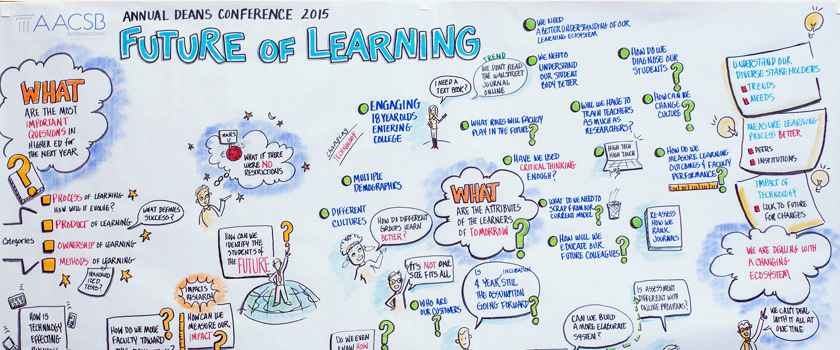 AACSB
INTERNATIONAL
ANNUAL DEANS CONFERENCE 2015
FUTURE OF LEARNING
WHAT
ARE THE MOST
IMPORTANT
QUESTIONS IN
HIGHER ED FOR
THE NEXT YEAR
?
Categories
PROCESS OF LEARNING
HOW WILL IT EVOLVE?
PRODUCT OF LEARNING
WHAT DEFINES
SUCCESS?
OWNERSHIP OF LEARNING
METHODS OF LEARNING
TESTS?
HOW IS
TECHNOLOGY
EFFECTING
MARS
WHAT IF THERE
WERE NO
RESTRICTIONS
HOW CAN WE
IDENTIFY THE
STUDENTS OF
THE FUTURE
?
IMPACTS
RESEARCH
HOW DO WE MOVE
FACULTY TOWARD
HOW CAN WE
MEASURE OUR
IMPACT
CHANGING
TECHNOLOGY
ENGAGING
18 YEAR OLDS
ENTERING
COLLEGE
MULTIPLE
DEMOGRAPHICS
DIFFERENT
CULTURES
I NEED A
TEXT BOOK?
TREND
WE DON'T READ
THE WALL STREET
JOURNAL
ONLINE
WHY NOT?
HOW DO DIFFERENT
GROUPS LEARN
BETTER?
IT'S NOT ONE
SIZE FITS ALL
WHO ARE
OUR CUSTOMERS
?
DO WE EVEN
KNOW HOW
WE NEED
A BETTER UNDERSTANDING OF OUR
LEARNING ECOSYSTEM
WE NEED TO
UNDERSTAND
OUR STUDENT
BODY BETTER
WHAT ROLES WILL FACULTY
PLAY IN THE FUTURE?
HAVE WE USED
CRITICAL THINKING
ENOUGH?
WHAT
ARE THE ATTRIBUTES
OF THE LEARNERS
OF TOMORROW
?
IS INCUBATION
4 YEAR STILL
THE ASSUMPTION
GOING FORWARD?
HOW DO WE
DIAGNOSE OUR
STUDENTS
?
WILL WE HAVE TO
TRAIN TEACHERS
AS MUCH AS
RESEARCHERS?
HOW CAN WE
CHANGE
CULTURE
?
HIGH TECH
HIGH TOUCH
HOW DO WE
MEASURE LEARNING
OUTCOMES & FACULTY
PERFORMANCE?
WHAT DO WE NEED TO
SCRAP FROM OUR
CURRENT MODEL
?
HOW WILL WE
EDUCATE OUR
FUTURE COLLEAGUES
?
RE-ASSESS
HOW WE
RANK
JOURNALS
CAN WE BUILD
A MORE ELABORATE
SYSTEM?
IS ASSESSMENT
DIFFERENT WITH
ONLINE PROGRAMS?
UNDERSTAND OUR
DIVERSE STAKEHOLDERS
TRENDS
NEEDS
MEASURE LEARNING
PROCESS BETTER
PEERS
INSTITUTIONS
IMPACT OF
TECHNOLOGY
LOOK TO FUTURE
FOR CHANGES
WE ARE DEALING WITH
A CHANGING
ECOSYSTEM
WE CAN'T DEAL
WITH IT ALL AT
ONE TIME